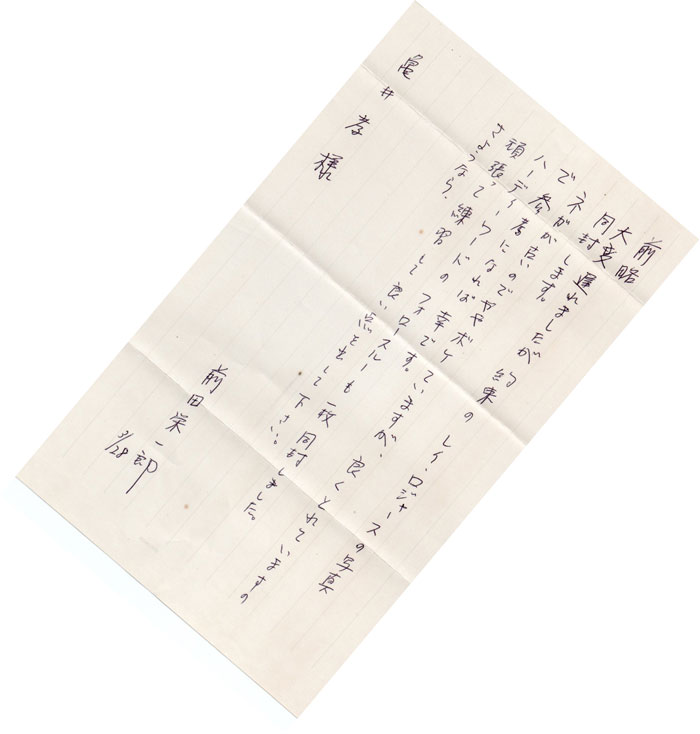 前略
大変遅れましたが約束のレイ・ロジャースの写真
同封します。
ネガが古いのでややボケていますが、良くとれていますの
で参考になれば幸です。
ハーディ・ワードのフォロースルーも一枚同封しました。
頑張って練習して良い点を出して下さい。
さようなら、
前田栄一郎
3/28
亀井孝様